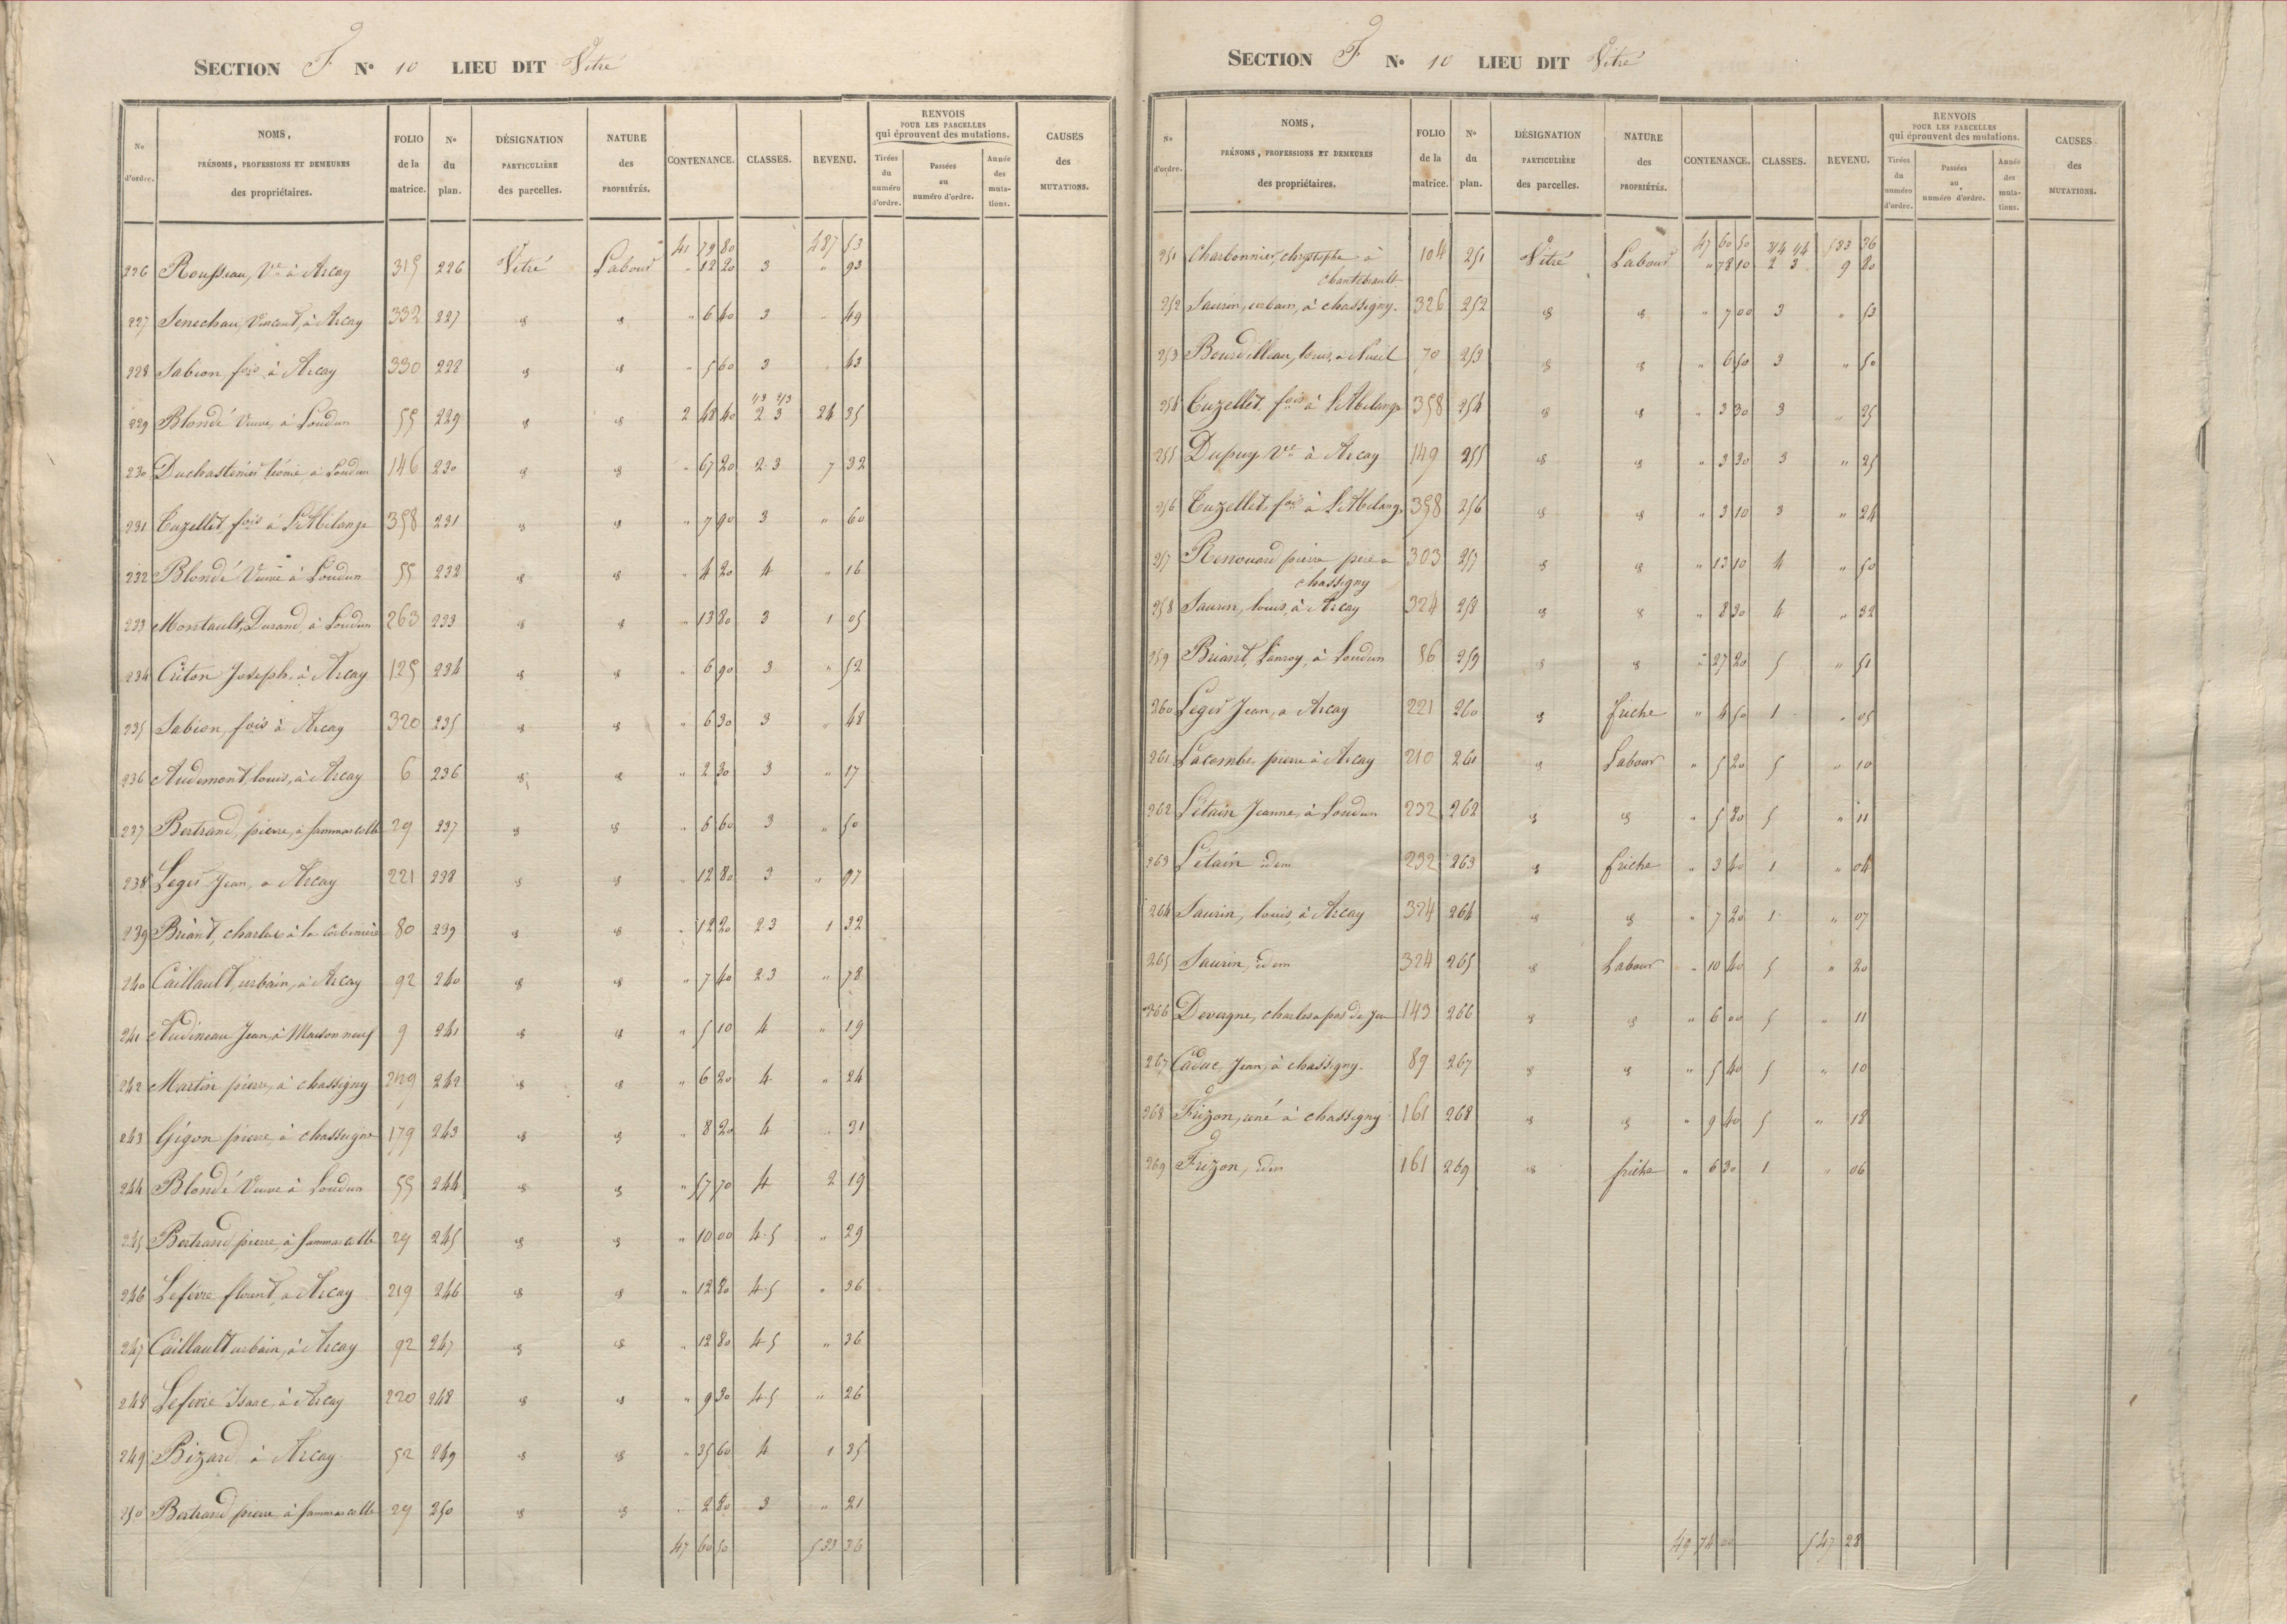 SECTION F N° 10 LIEU DIT Vitré
N° d'ordre. NOMS, PRÉNOMS, PROFESSIONS ET DEMEURES des propriétaires. FOLIO de la matrice. N° du plan. DÉSIGNATION PARTICULIÈRE des parcelles. NATURE des PROPRIÉTÉS. CONTENANCE. CLASSES. REVENU. RENVOIS POUR LES PARCELLES qui éprouvent des mutations. Tirées du numéro d'ordre. Passées au numéro d'ordre. Année des mutations. CAUSES des MUTATIONS.
41 79 80 487 53
226 Rousseau, Ve à Arcay 315 226 Vitré Labour " 12 20 3 " 93
227 Senechau, Vincent, à Arcay 332 227 id id " 6 40 3 " 49
228 Sabion, fois à Arcay 330 228 id id " 5 60 3 " 43
1/3 2/3
229 Blondé Veuve, à Loudun 55 229 id id 2 48 40 2 3 24 35
230 Duchastenier Léonie, à Loudun 146 230 id id " 67 20 2.3 7 32
231 Cuzellet, fois à 358 231 id id " 7 90 3 " 60
232 Blondé Veuve à Loudun 55 232 id id " 4 20 4 " 16
233 Montault, Durand, à Loudun 263 233 id id " 13 80 3 1 05
234 Criton Joseph, à Arcay 125 234 id id " 6 90 3 " 52
235 Sabion, fois à Arcay 320 235 id id " 6 30 3 " 48
236 Audemont, louis, à Arcay 6 236 id id " 2 30 3 " 17
237 Bertrand, pierre, à Sammarcolle 29 237 id id " 6 60 3 " 50
238 Leger Jean, a Arcay 221 238 id id " 12 80 3 " 97
239 Briant, charles à la 80 239 id id " 12 20 2.3 1 32
240 Caillault, urbain, à Arcay 92 240 id id " 7 40 2.3 " 78
241 Audineau Jean, à Maison neuf 9 241 id id " 5 10 4 " 19
242 Martin pierre, à chassigny 249 242 id id " 6 20 4 " 24
243 Gigon pierre, à chasseigne 179 243 id id " 8 20 4 " 31
244 Blondé Veuve à Loudun 55 244 id id " 57 70 4 2 19
245 Bertrand pierre, à Sammarcolle 29 245 id id " 10 00 4.5 " 29
246 Lefevre florent, a Arcay 219 246 id id " 12 20 4.5 " 36
247 Caillault urbain, à Arcay 92 247 id id " 12 80 4.5 " 36
248 Lefevre Isaac, à Arcay 220 248 id id " 9 30 4.5 " 26
249 Bizard à Arcay 52 249 id id " 35 60 4 1 35
250 Bertrand pierre, à Sammarcolle 29 250 id id " 2 80 3 " 21
47 60 50 533 36
SECTION F N° 10 LIEU DIT Vitré
N° d'ordre. NOMS, PRÉNOMS, PROFESSIONS ET DEMEURES des propriétaires. FOLIO de la matrice. N° du plan. DÉSIGNATION PARTICULIÈRE des parcelles. NATURE des PROPRIÉTÉS. CONTENANCE. CLASSES. REVENU. RENVOIS POUR LES PARCELLES qui éprouvent des mutations. Tirées du numéro d'ordre. Passées au numéro d'ordre. Année des mutations. CAUSES des MUTATIONS.
47 60 50 533 36
251 Charbonnier, chrystophe à 104 251 Vitré Labour " 78 10 2 3 9 20
252 Saurin, urbain, à chassigny. 326 252 id id " 7 00 3 " 53
253 Bourdilleau, louis, à Nueil 70 253 id id " 6 50 3 " 50
254 Cuzellet, fois à 358 254 id id " 3 30 3 " 25
255 Dupuy Ve à Arcay 149 255 id id " 3 30 3 " 25
256 Cuzellet, fois à 358 256 id id " 3 10 3 " 24
257 Renouard pierre pere a 303 257 id id " 13 10 4 " 50
chassigny
258 Saurin, louis, à Arcay 324 258 id id " 8 30 4 " 32
259 Briant, à Loudun 86 259 id id " 27 20 5 " 51
260 Leger Jean, a Arcay 221 260 id friche " 4 50 1 " 05
261 Lacombe, pierre à Arcay 210 261 id Labour " 5 20 5 " 10
262 Létain Jeanne, à Loudun 232 262 id id " 5 80 5 " 11
263 Létain idem 232 263 id friche " 3 40 1 " 04
264 Saurin, louis, à Arcay 324 264 id id " 7 20 1 " 07
265 Saurin, idem 324 265 id Labour " 10 40 5 " 20
266 Devergne, charles a pas de jeu 143 266 id id " 6 00 5 " 11
267 Caduc, Jean, à chassigny. 89 267 id id " 5 40 5 " 10
268 Frizon, ainé à chassigny 161 268 id id " 9 40 5 " 18
269 Frizon, idem 161 269 id friche " 6 30 1 " 06
49 74 00 547 28